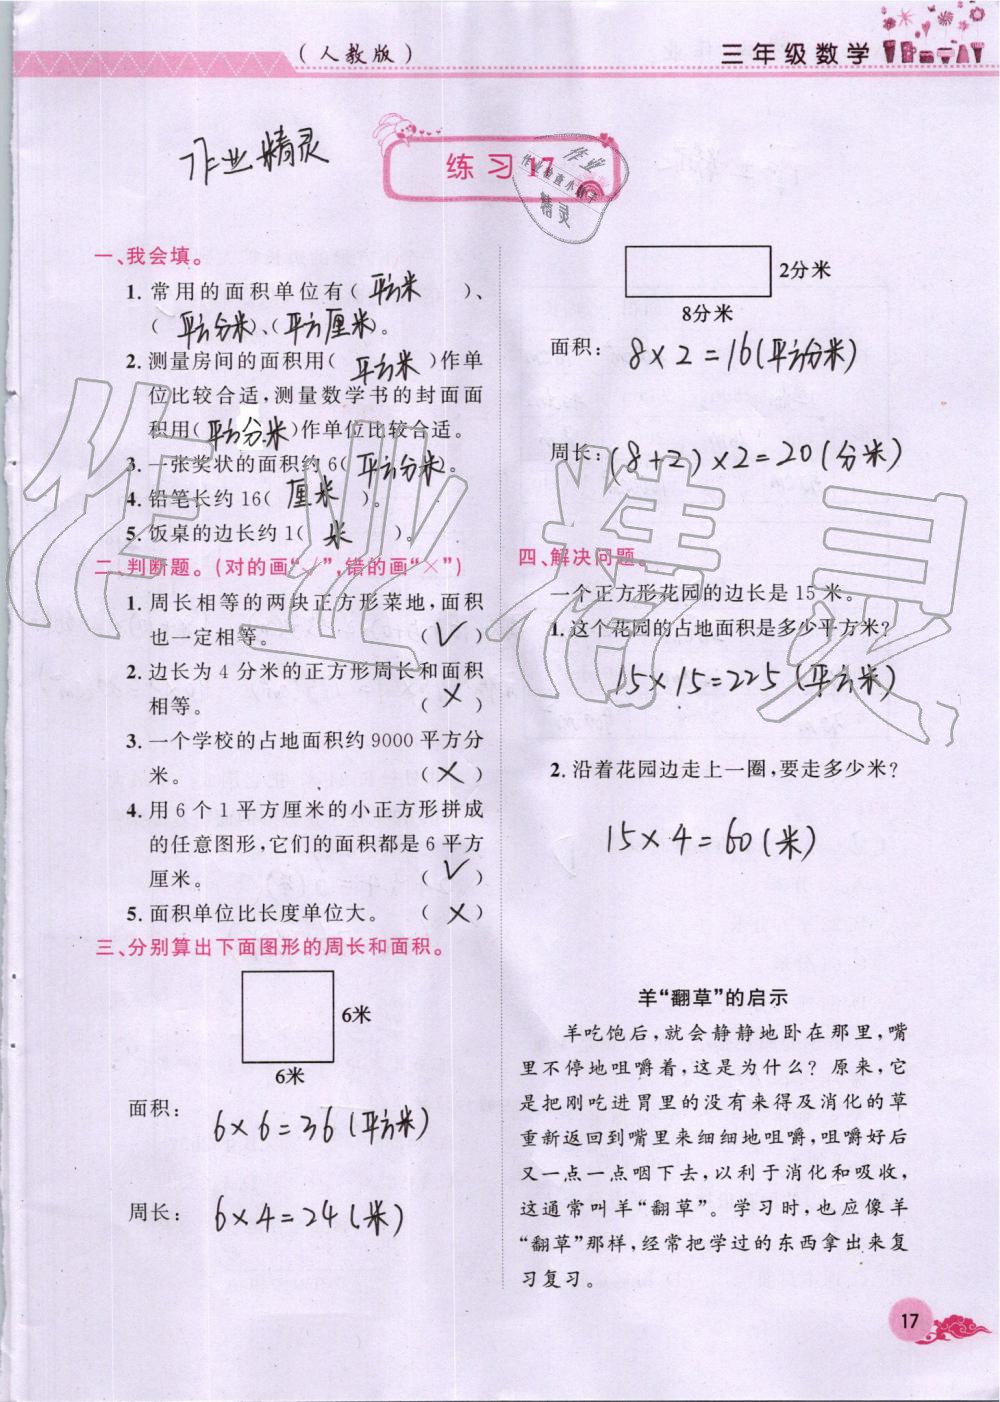 (人教版)
三年级数学
作业精灵
练习17
作业
作业检查小帮手
精灵
一、我会填。
1. 常用的面积单位有( 平方米 )、
( 平方分米 )、( 平方厘米 )。
2. 测量房间的面积用( 平方米 )作单
位比较合适,测量数学书的封面面
积用( 平方分米 )作单位比较合适。
3. 一张奖状的面积约6( 平方分米 )。
4. 铅笔长约16( 厘米 )。
5. 饭桌的边长约1( 米 )。
二、判断题。(对的画“√”,错的画“×”)
1. 周长相等的两块正方形菜地,面积
也一定相等。 ( √ )
2. 边长为4分米的正方形周长和面积
相等。 ( × )
3. 一个学校的占地面积约9000平方分
米。 ( × )
4. 用6个1平方厘米的小正方形拼成
的任意图形,它们的面积都是6平方
厘米。 ( √ )
5. 面积单位比长度单位大。 ( × )
三、分别算出下面图形的周长和面积。
6米
6米
面积: 6×6=36(平方米)
周长: 6×4=24(米)
2分米
8分米
面积: 8×2=16(平方分米)
周长: (8+2)×2=20(分米)
四、解决问题。
一个正方形花园的边长是15米。
1. 这个花园的占地面积是多少平方米?
15×15=225(平方米)
2. 沿着花园边走上一圈,要走多少米?
15×4=60(米)
羊“翻草”的启示
羊吃饱后,就会静静地卧在那里,嘴
里不停地咀嚼着,这是为什么?原来,它
是把刚吃进胃里的没有来得及消化的草
重新返回到嘴里来细细地咀嚼,咀嚼好后
又一点一点咽下去,以利于消化和吸收,
这通常叫羊“翻草”。学习时,也应像羊
“翻草”那样,经常把学过的东西拿出来复
习复习。
17
作业精灵